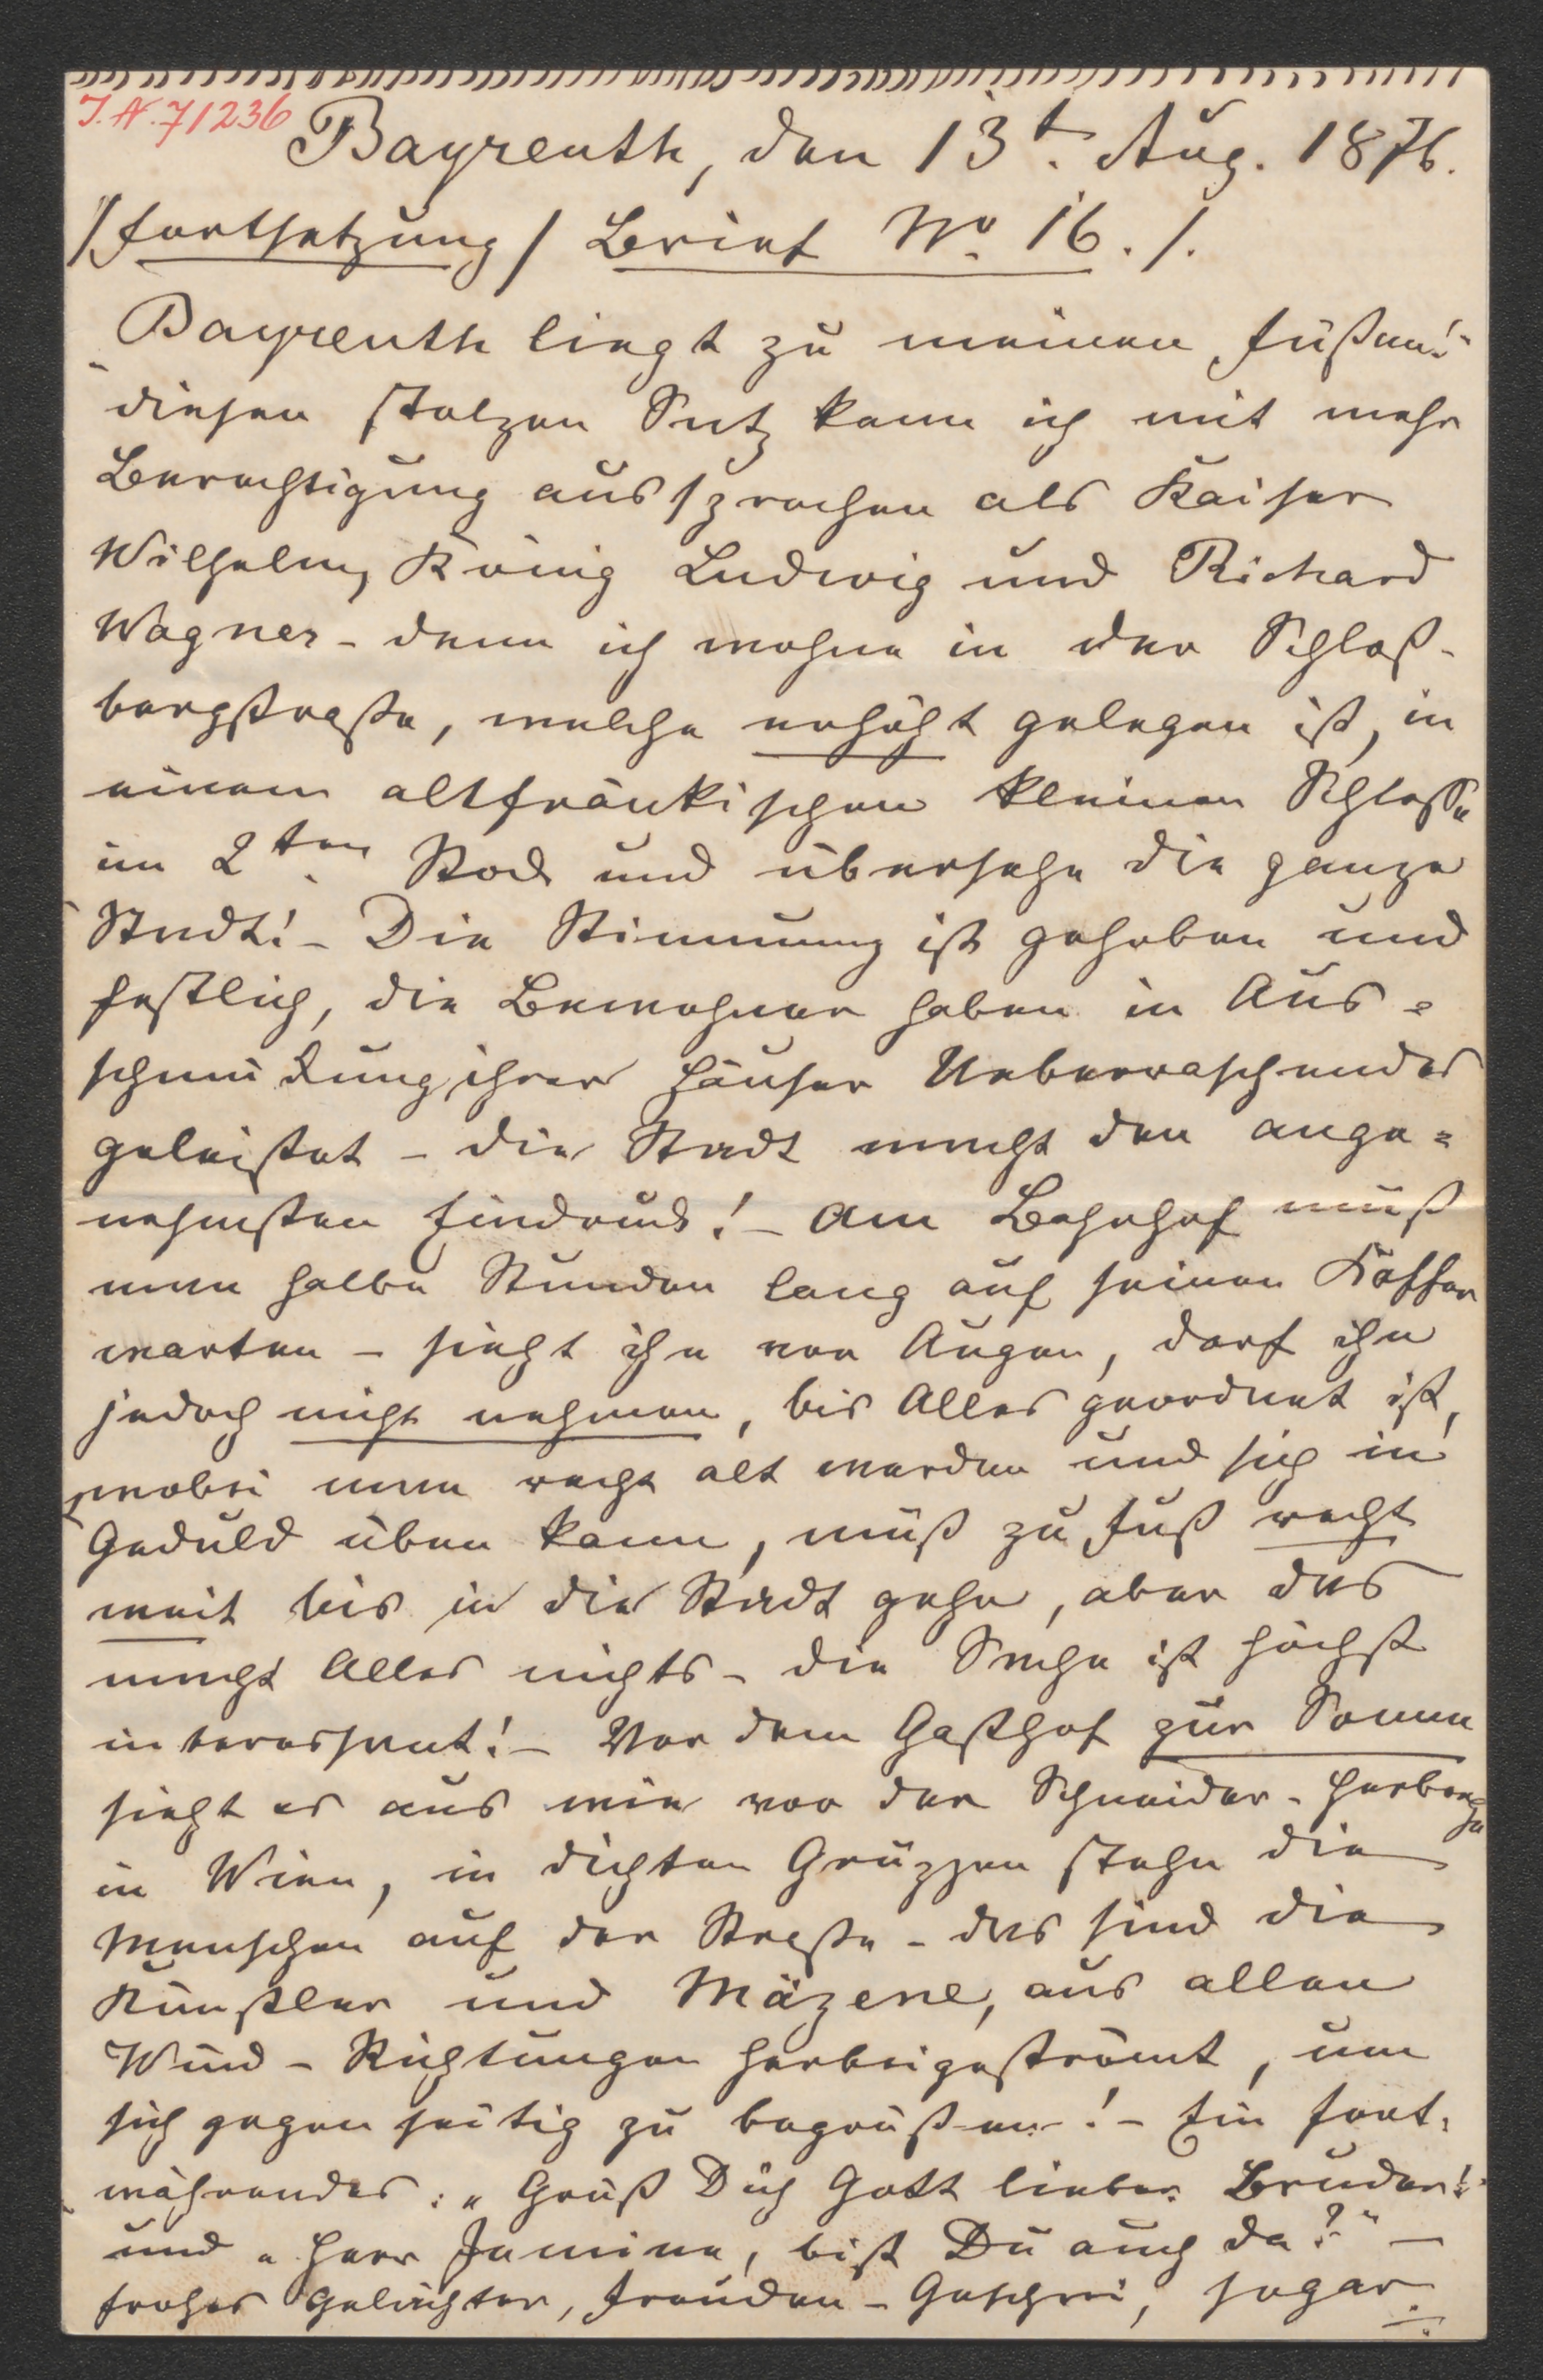 I.N. 71236
Bayreuth, den 13t. Aug. 1876.
/Fortsetzung/ Brief No. 16./.
"Bayreuth liegt zu meinen Füßen!"
diesen stolzen Satz kann ich mit mehr
Berechtigung aussprechen als Kaiser
Wilhelm, König Ludwig und Richard
Wagner - denn ich wohne in der Schloß-
bergstraße, welche erhöht gelegen ist, in
einem altfränkischen kleinen Schlosse
im 2ten Stock und übersehe die ganze
Stadt! - Die Stimmung ist gehoben und
festlich, die Bewohner haben in Aus=
schmückung ihrer Häuser Ueberraschendes
geleistet - die Stadt macht den ange=
nehmsten Eindruck! - Am Bahnhof muß
man halbe Stunden lang auf seinen Koffer
warten - sieht ihn vor Augen, darf ihn
jedoch nicht nehmen, bis Alles geordnet ist,
wobei man recht alt werden und sich in
Geduld üben kann, muß zu Fuß recht
weit bis in die Stadt gehn, aber das
macht Alles nichts - die Sache ist höchst
interessant! - Vor dem Gasthof zur Sonne
sieht es aus wie vor der Schneider-Herberge
in Wien, in dichten Gruppen stehn die
Menschen auf der Straße - das sind die
Künstler und Mäzene, aus allen
Wind-Richtungen herbeigeströmt, um
sich gegenseitig zu begrüßen! - Ein fort=
währendes: "Grüß Dich Gott lieber Bruder!"
und "Herr Jemine, bist Du auch da?" -
frohes Gelächter, Freuden-Geschrei, sogar